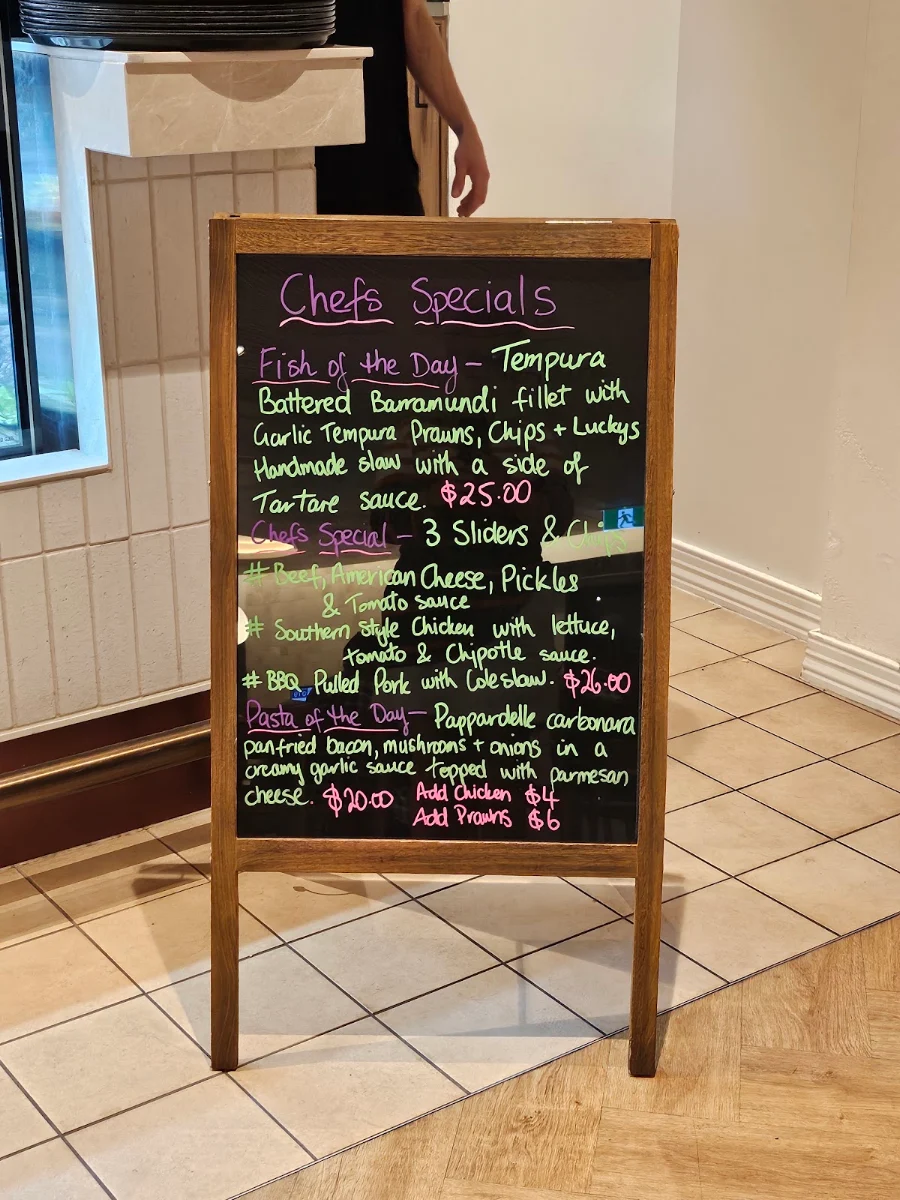 Chefs Specials
Fish of the Day - Tempura
Battered Barramundi fillet with
Garlic Tempura Prawns, Chips + Luckys
Handmade slaw with a side of
Tartare sauce. $25.00
Chefs Special - 3 Sliders & Chips
# Beef, American Cheese, Pickles
& Tomato sauce
# Southern Style Chicken with lettuce,
tomato & Chipotle sauce.
# BBQ Pulled Pork with Coleslaw. $26.00
Pasta of the Day - Pappardelle carbonara
panfried bacon, mushrooms + onions in a
creamy garlic sauce topped with parmesan
cheese. $20.00 Add Chicken $4
Add Prawns $6